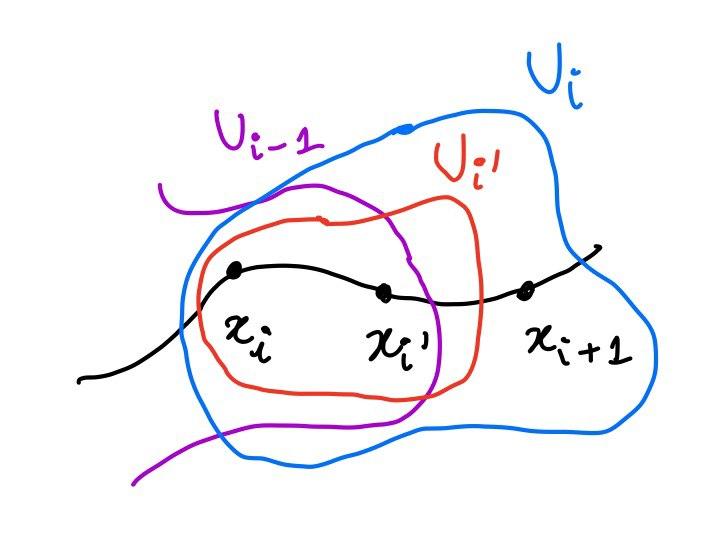 U_i
U_{i-1}
U_{i'}
x_i
x_{i'}
x_{i+1}